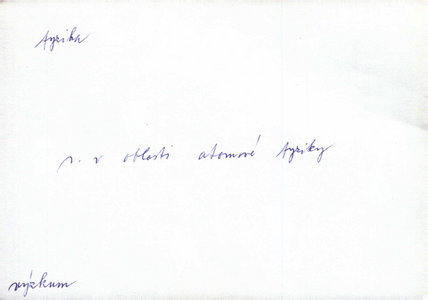 fyzika
v. v oblasti atomové fyziky
výzkum